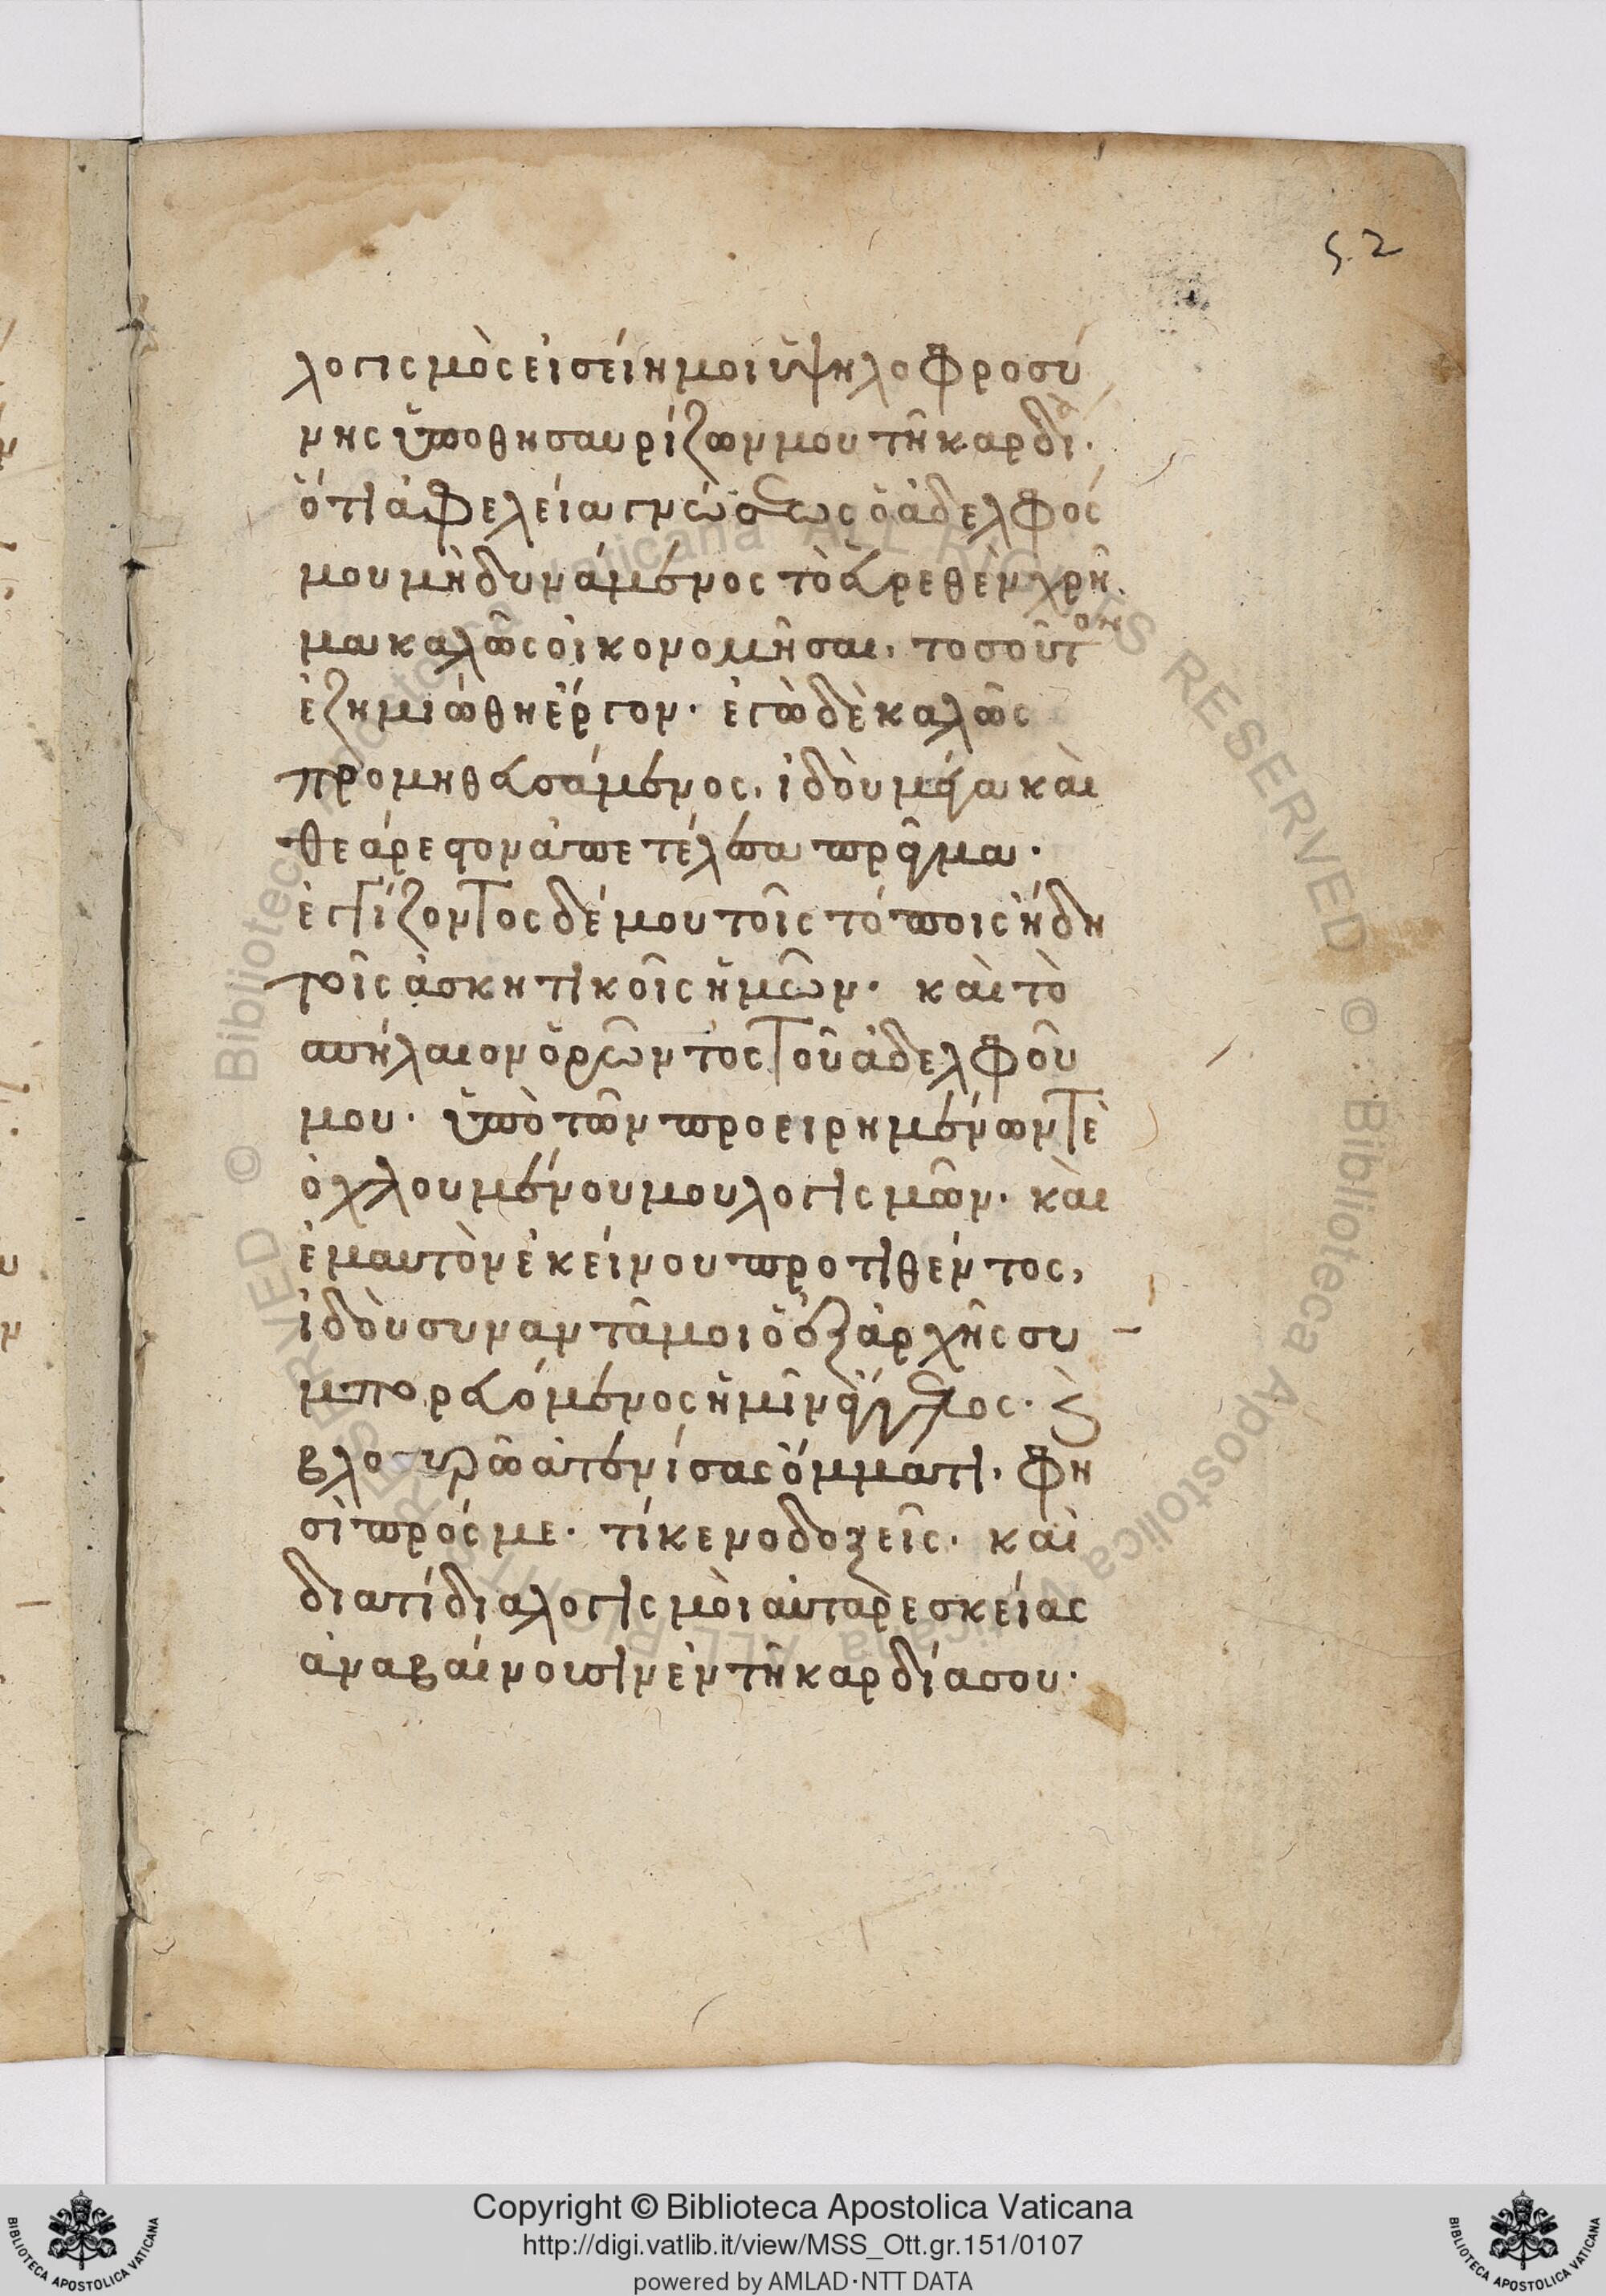 52
λογισμὸς εἰσείη μοι ὑψηλοφροσύ
νης ὑποθησαυρίζων μου τῆ καρδίᾳ·
ὅτι ἀφελεία γνώσεως ὁ ἀδελφός
μου μὴ δυνάμενος τὸ εὑρεθὲν χρῆ
μα καλῶς οἰκονομῆσαι, τοσοῦτον
ἐζημιώθη ἔργον· ἐγὼ δὲ καλῶς
προμηθευσάμενος, ἰδοὺ μέγα καὶ
θεάρεστον ἀπετέλεσα πρᾶγμα·
ἐγγίζοντος δέ μου τοῖς τόποις ἤδη
τοῖς ἀσκητικοῖς ἡμῶν· καὶ τὸ
σπήλαιον ὁρῶντος τοῦ ἀδελφοῦ
μου· ὑπὸ τῶν προειρημένων τὲ
ὀχλουμένου μου λογισμῶν· καὶ
ἐμαυτὸν ἐκείνου προτιθέντος,
ἰδοὺ συναντᾶ μοι ὁ ἐξαρχῆς συ
μπορευόμενος ἡμῖν ἄγγελος· καὶ
βλοσυρῶ ἀτενίσας ὄμματι, φη
σὶ πρός με· τί κενοδοξεῖς· καὶ
διατί διαλογισμὸι αὐταρεσκείας
ἀναβαίνουσιν ἐν τῆ καρδία σου·
Copyright © Biblioteca Apostolica Vaticana
http://digi.vatlib.it/view/MSS_Ott.gr.151/0107
powered by AMLAD·NTT DATA
BIBLIOTECA APOSTOLICA VATICANA
BIBLIOTECA APOSTOLICA VATICANA